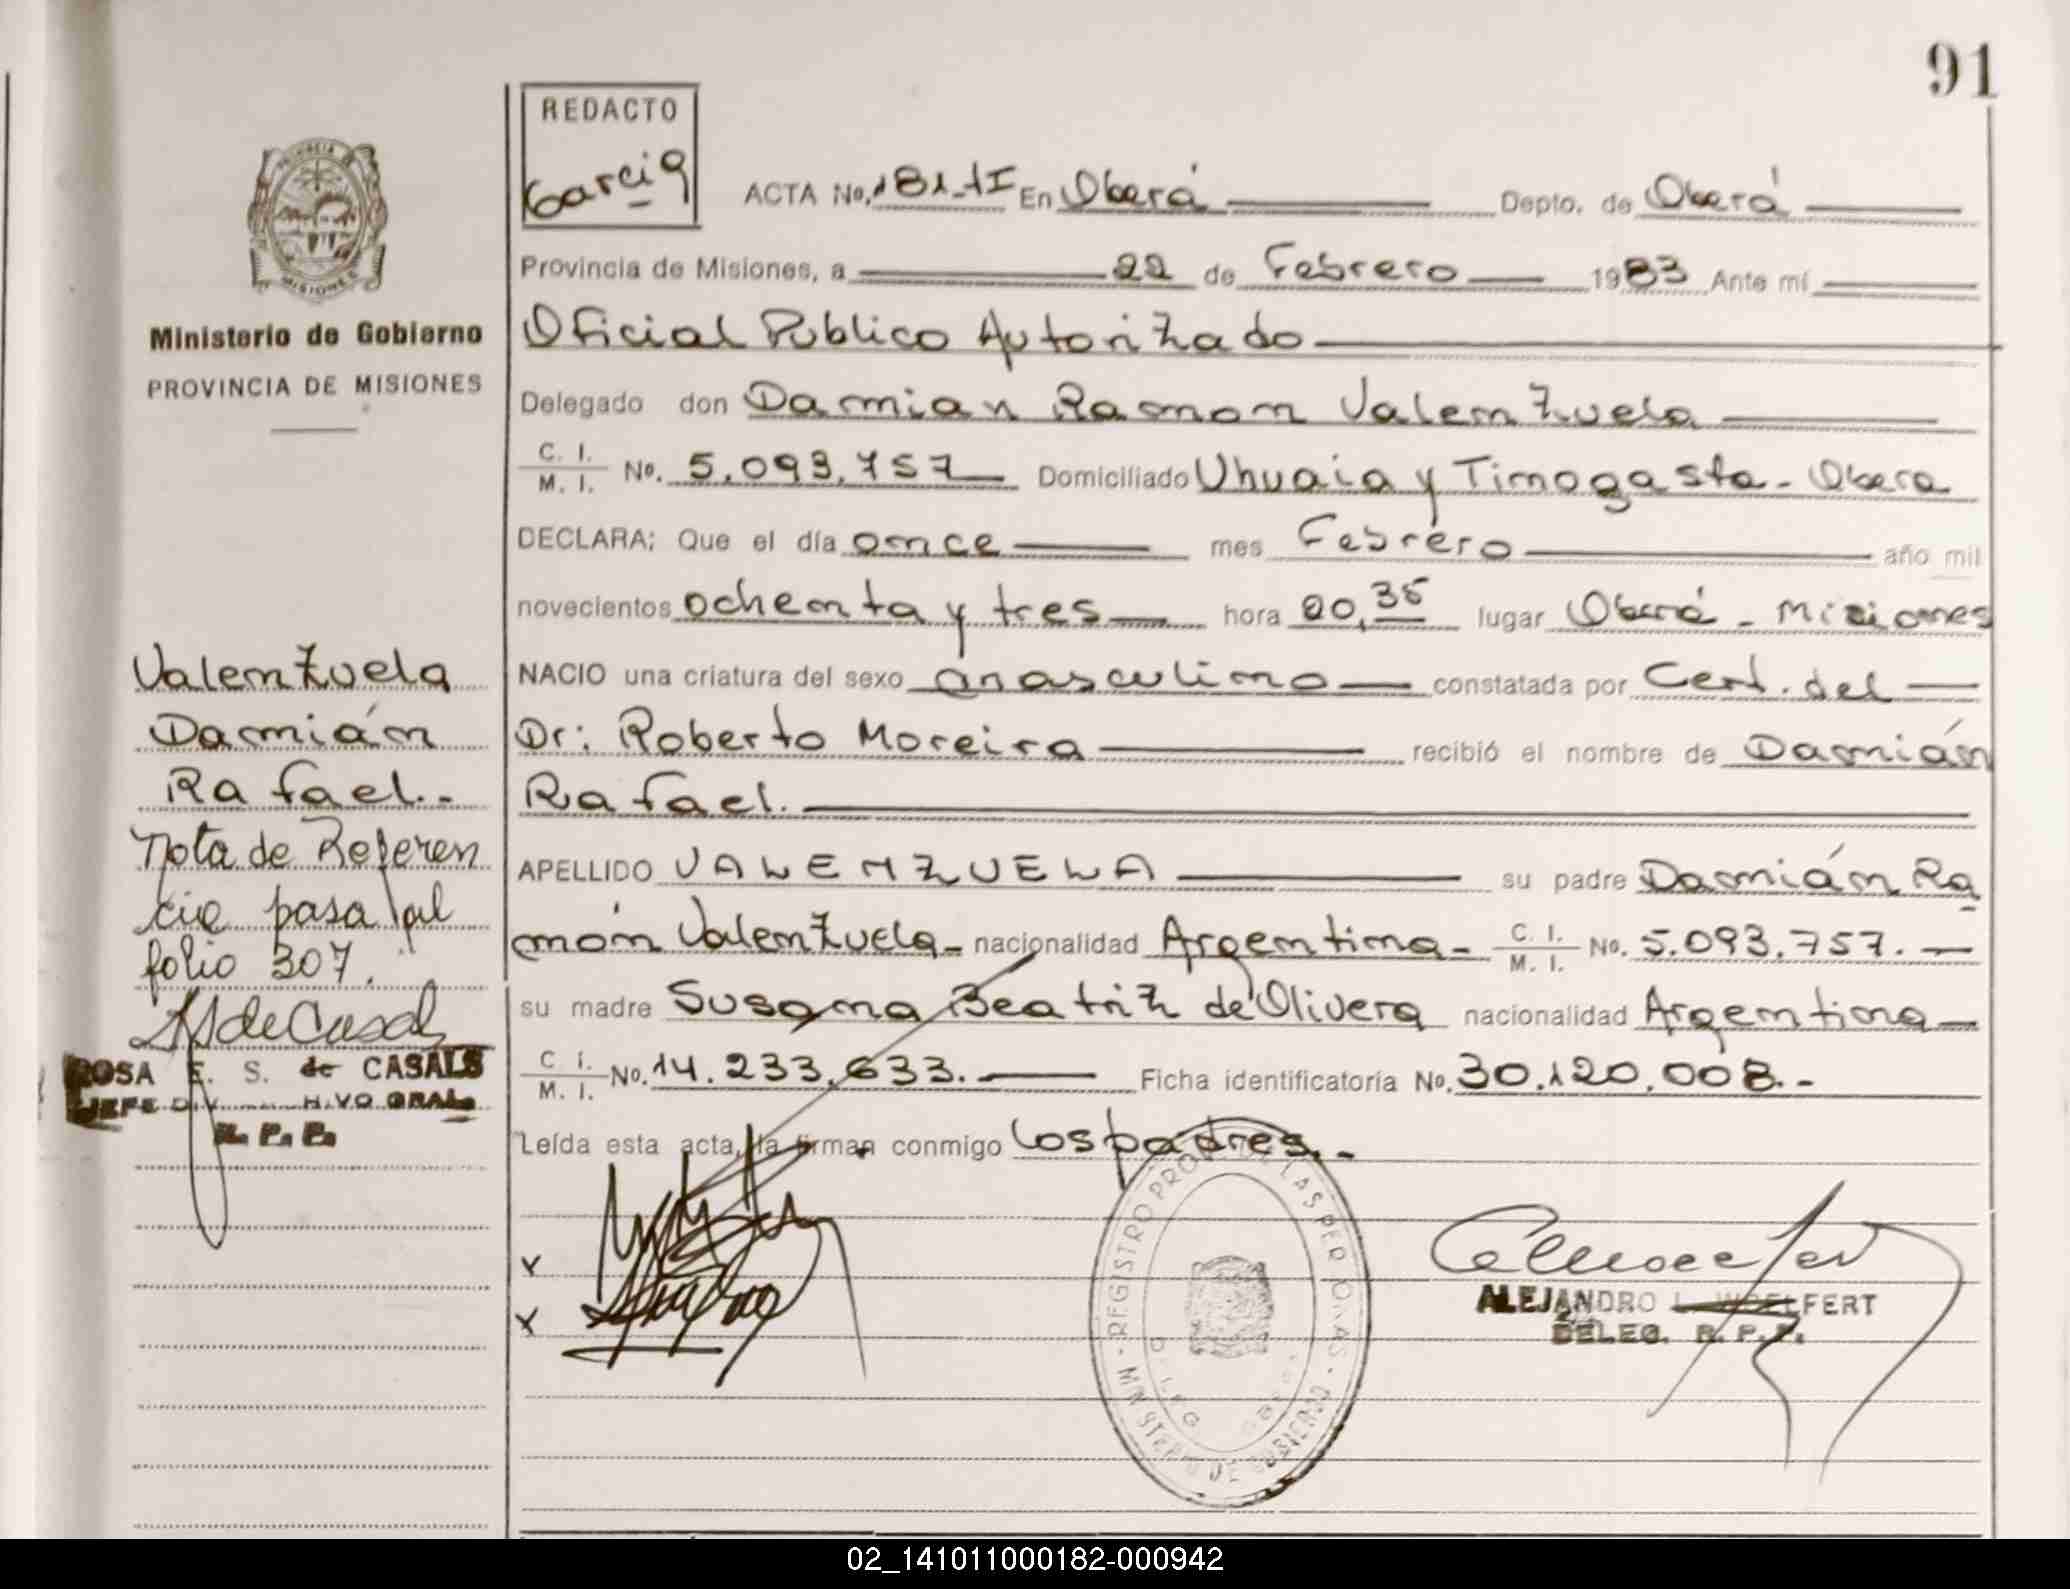 91
REDACTO
Garcia
ACTA No. 181-tI En Oberá Depto. de Oberá
Provincia de Misiones, a 22 de Febrero 1983 Ante mí
Oficial Publico Autorizado
Delegado don Damian Ramon Valenzuela
C. I. M. I. No. 5.093.757 Domiciliado Uhuaia y Timogasta - Obera
DECLARA: Que el día once mes Febrero año mil
novecientos ochenta y tres hora 20,35 lugar Oberá - Misiones
NACIO una criatura del sexo masculino constatada por Cert. del
Dr: Roberto Moreira recibió el nombre de Damián
Rafael.
APELLIDO VALENZUELA su padre Damián Ra
món Valenzuela - nacionalidad Argentina - C. I. M. I. No. 5.093.757. -
su madre Susana Beatriz de Olivera nacionalidad Argentina -
C. I. M. I. No. 14.233.633. - Ficha identificatoria No. 30.120.008. -
Leída esta acta, la firman conmigo los padres. -
x
x
REGISTRO PROV. DE LAS PERSONAS
MINISTERIO DE GOBIERNO
DELEG. OBERA
ALEJANDRO L. WOELFERT
DELEG. R. P. P.
PROVINCIA DE
MISIONES
Ministerio de Gobierno
PROVINCIA DE MISIONES
Valenzuela
Damián
Rafael.-
Nota de Referen
cia pasa al
folio 307.
ROSA E. S. de CASALS
JEFE DIV. GRAL.
R. P. P.
02_141011000182-000942